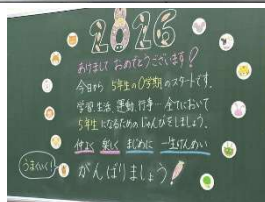 2026
あけまして おめでとうございます!
今日から 5年生の0学期のスタートです。
学習、生活、運動、行事… 全てにおいて
5年生になるためのじゅんびをしましょう。
仲よく 楽しく まじめに 一生けんめい
がんばりましょう!
うまくいく!